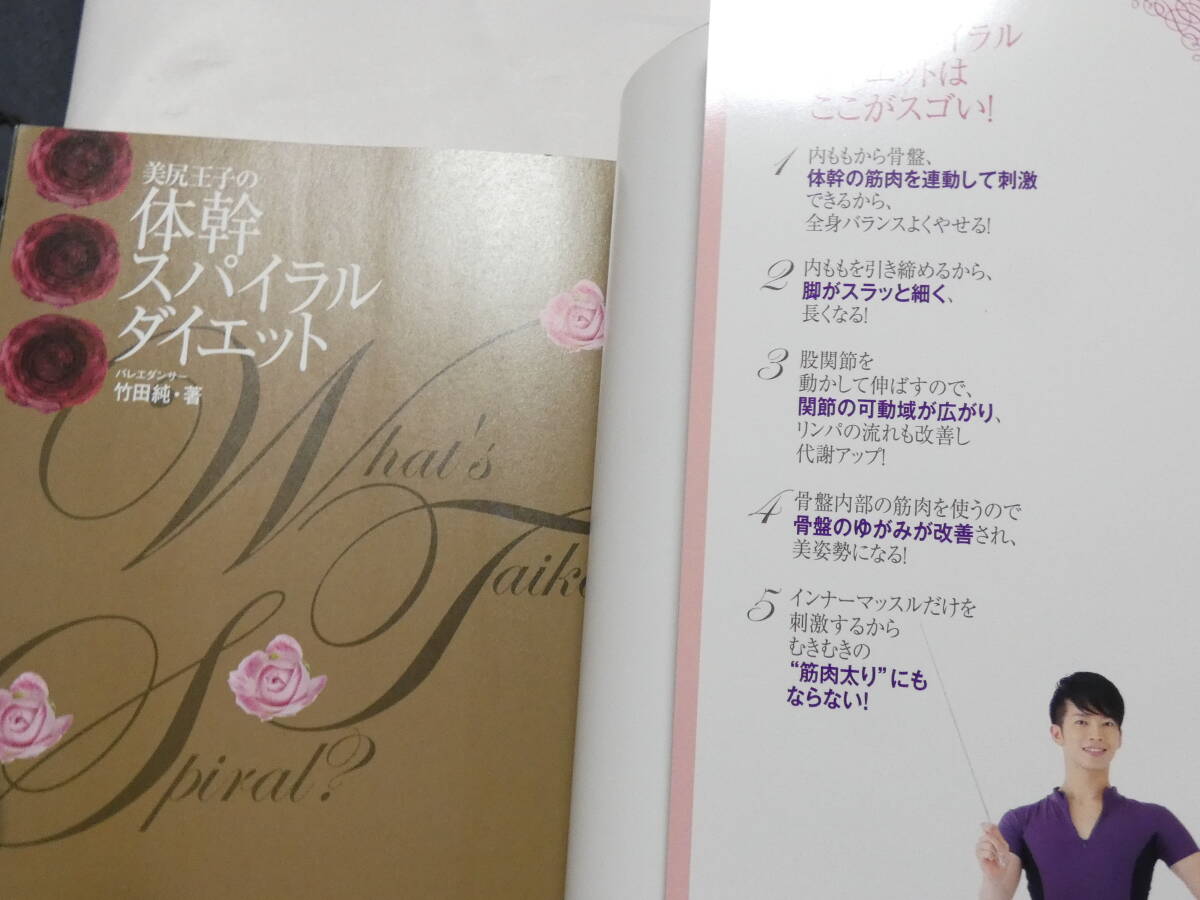 美尻王子の
体幹
スパイラル
ダイエット
バレエダンサー
竹田純・著
What's
Taik
Spiral?
イラル
エットは
ここがスゴい!
1 内ももから骨盤、
体幹の筋肉を連動して刺激
できるから、
全身バランスよくやせる!
2 内ももを引き締めるから、
脚がスラッと細く、
長くなる!
3 股関節を
動かして伸ばすので、
関節の可動域が広がり、
リンパの流れも改善し
代謝アップ!
4 骨盤内部の筋肉を使うので
骨盤のゆがみが改善され、
美姿勢になる!
5 インナーマッスルだけを
刺激するから
むきむきの
“筋肉太り”にも
ならない!